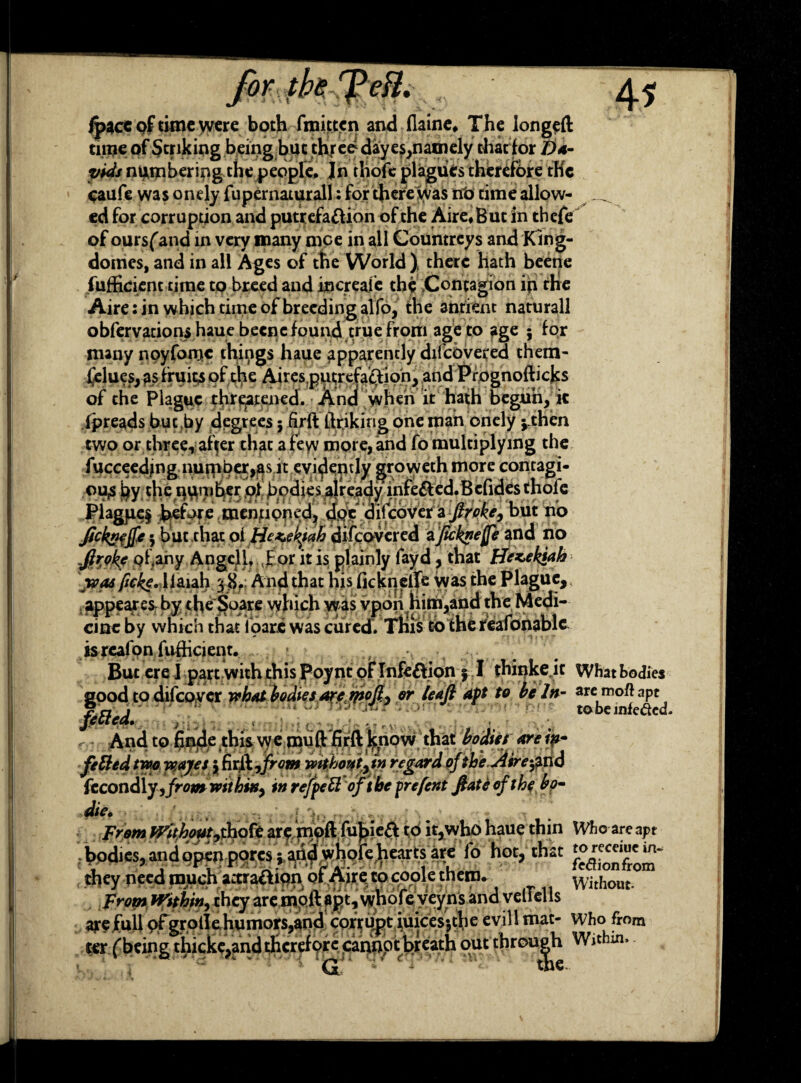 for the Pest. 45
space of time were both smitten and slaine. The longest
time of Striking being but three dayes, namely that for Da-
vids numbering the people. In those plagues therefore the
cause was onely supernaturall: for there was no time allow-
ed for corruption and putrefaction of the Aire. But in these
of ours (and in very many moe in all Countreys and King-
domes, and in all Ages of the World) there hath beene
sufficient time to breed and increase the Contagion in the
Aire: in which time of breeding also, the antient naturall
observations haue beene found true from age to age; for
many noysome things haue apparently discovered them-
selues, as fruits of the Aires putrefaction, and Prognosticks
of the Plague threatened. And when it hath begun, it
spreads but by degrees; first striking one man onely; then
two or three, after that a few more, and so multiplying the
succeeding number, as it evidently groweth more contagi-
ous by the number of bodies already infected. Besides those
Plagues before mentioned, doe discover a stroke, but no
sicknesse; but that of Hezekiah discovered a sicknesse and no
stroke of any Angell. For it is plainly sayd, that Hezekiah
was sicke. Isaiah 38. And that his sicknesse was the Plague,
appeares by the Soare which was vpon him, and the Medi-
cine by which that soare was cured. This to the reasonable
is reason sufficient.
But ere I part with this Poynt of Infection; I thinke it
good to discover what bodies are most, or least apt to be In-
fected.
What bodies
are most apt
to be infected.
And to finde this we must first know that bodies are in-
fected two wayes; first, from without, in regard of the Aire; and
secondly, from within, in respect of the present state of the bo-
die.
From Without, those are most subiect to it, who haue thin
bodies, and open pores; and whose hearts are so hot, that
they need much attraction of Aire to coole them.
Who are apt
to receiue in-
fection from
Without.
From Within, they are most apt, whose veyns and vessells
are full of grosse humors, and corrupt iuices; the evill mat-
ter (being thicke, and therefore cannot breath out through
Who from
Within.
G the